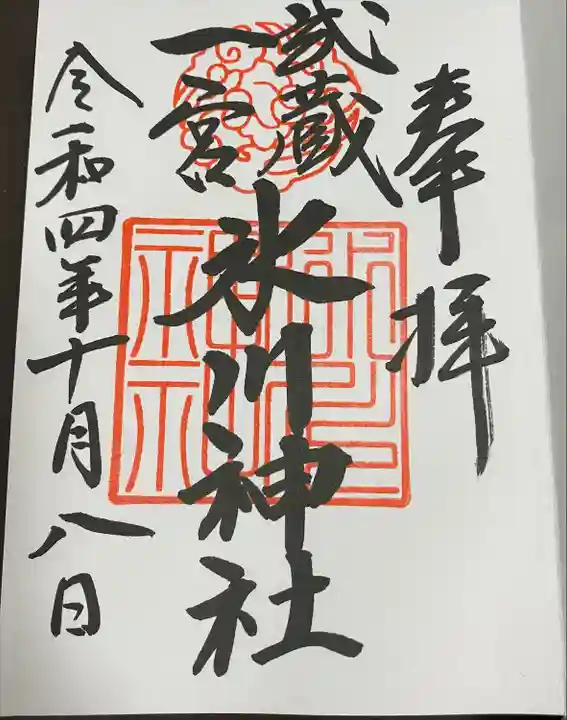 奉拝
武蔵
一宮
氷川神社
令和四年十月八日